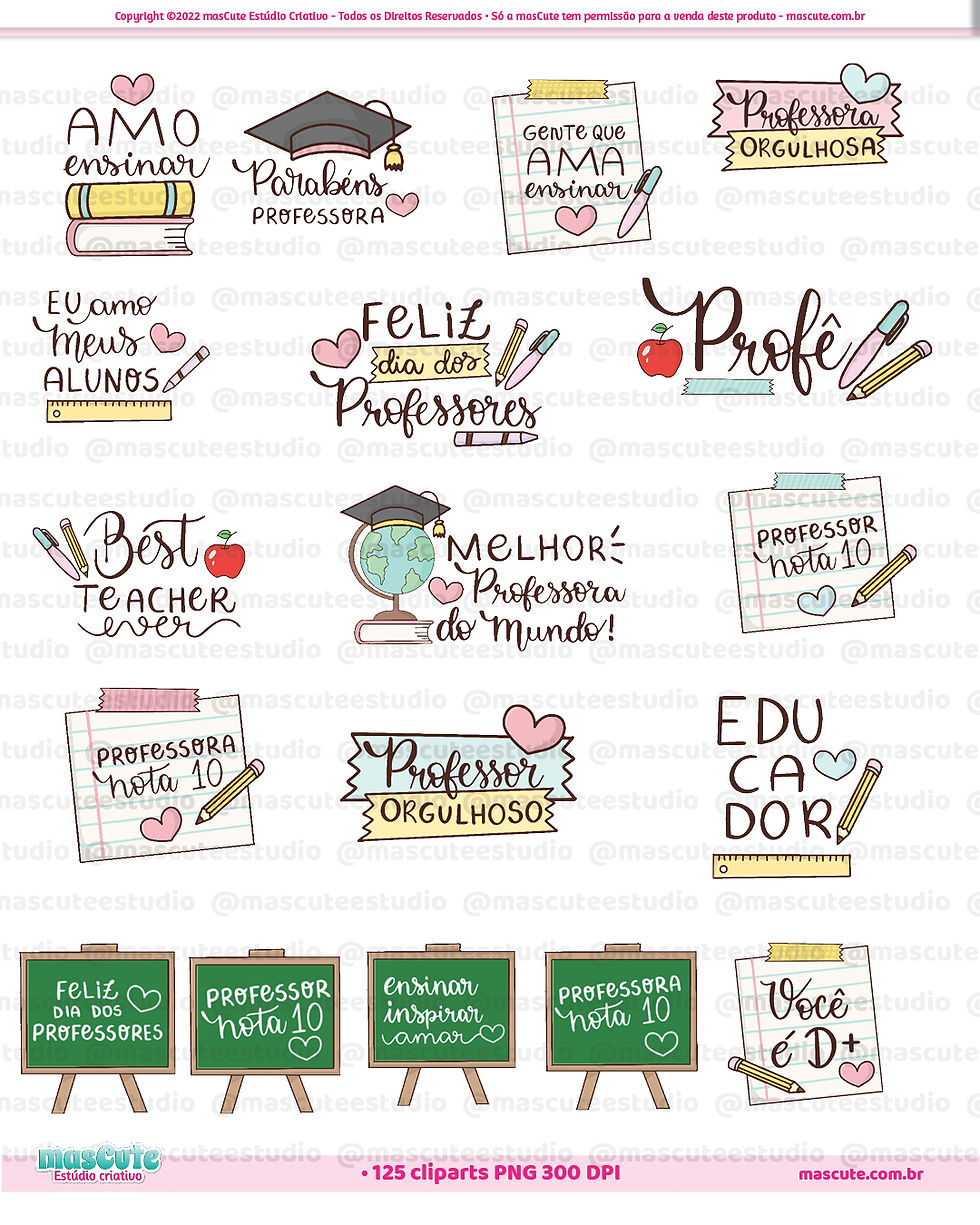 Copyright ©2022 masCute Estúdio Criativo - Todos os Direitos Reservados • Só a masCute tem permissão para a venda deste produto - mascute.com.br
AMO
ensinar
Parabéns
PROFESSORA
GENTE QUE
AMA
ensinar
Professora
ORGULHOSA
EU amo
Meus
ALUNOS
FELIZ
dia dos
Professores
Profê
Best
TEACHER
ever
MELHOR
Professora
do Mundo!
PROFESSOR
nota 10
PROFESSORA
nota 10
Professor
ORGULHOSO
EDU
CA
DOR
FELIZ
DIA DOS
PROFESSORES
PROFESSOR
nota 10
ensinar
inspirar
amar
PROFESSORA
nota 10
Você
é D+
@mascuteestudio
masCute
Estúdio criativo
• 125 cliparts PNG 300 DPI
mascute.com.br